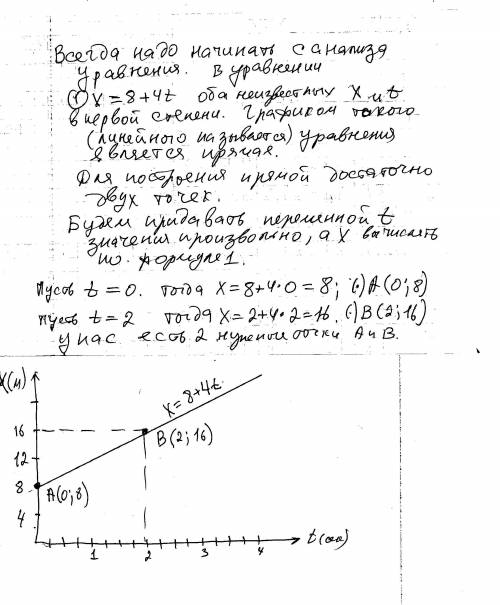 Всегда надо начинать с анализа
уравнения. В уравнении
(1) X = 8 + 4t оба неизвестных X и t
в первой степени. Графиком такого
(линейного называется) уравнения
является прямая.
Для построения прямой достаточно
двух точек.
Будем придавать переменной t
значения произвольно, а X вычислять
по формуле 1.
Пусть t = 0. тогда X = 8 + 4·0 = 8; (·) A (0; 8)
пусть t = 2 тогда X = 2 + 4·2 = 16. (·) B (2; 16)
у нас есть 2 нужные точки A и B.
X(м)
X = 8 + 4t
16
B (2; 16)
12
8
A (0; 8)
4
1 2 3 4
t (сек)